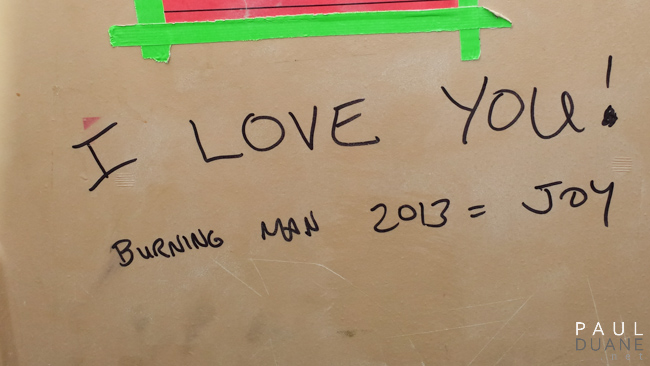 I LOVE YOU!
BURNING MAN 2013 = JOY
PAUL
DUANE
.net